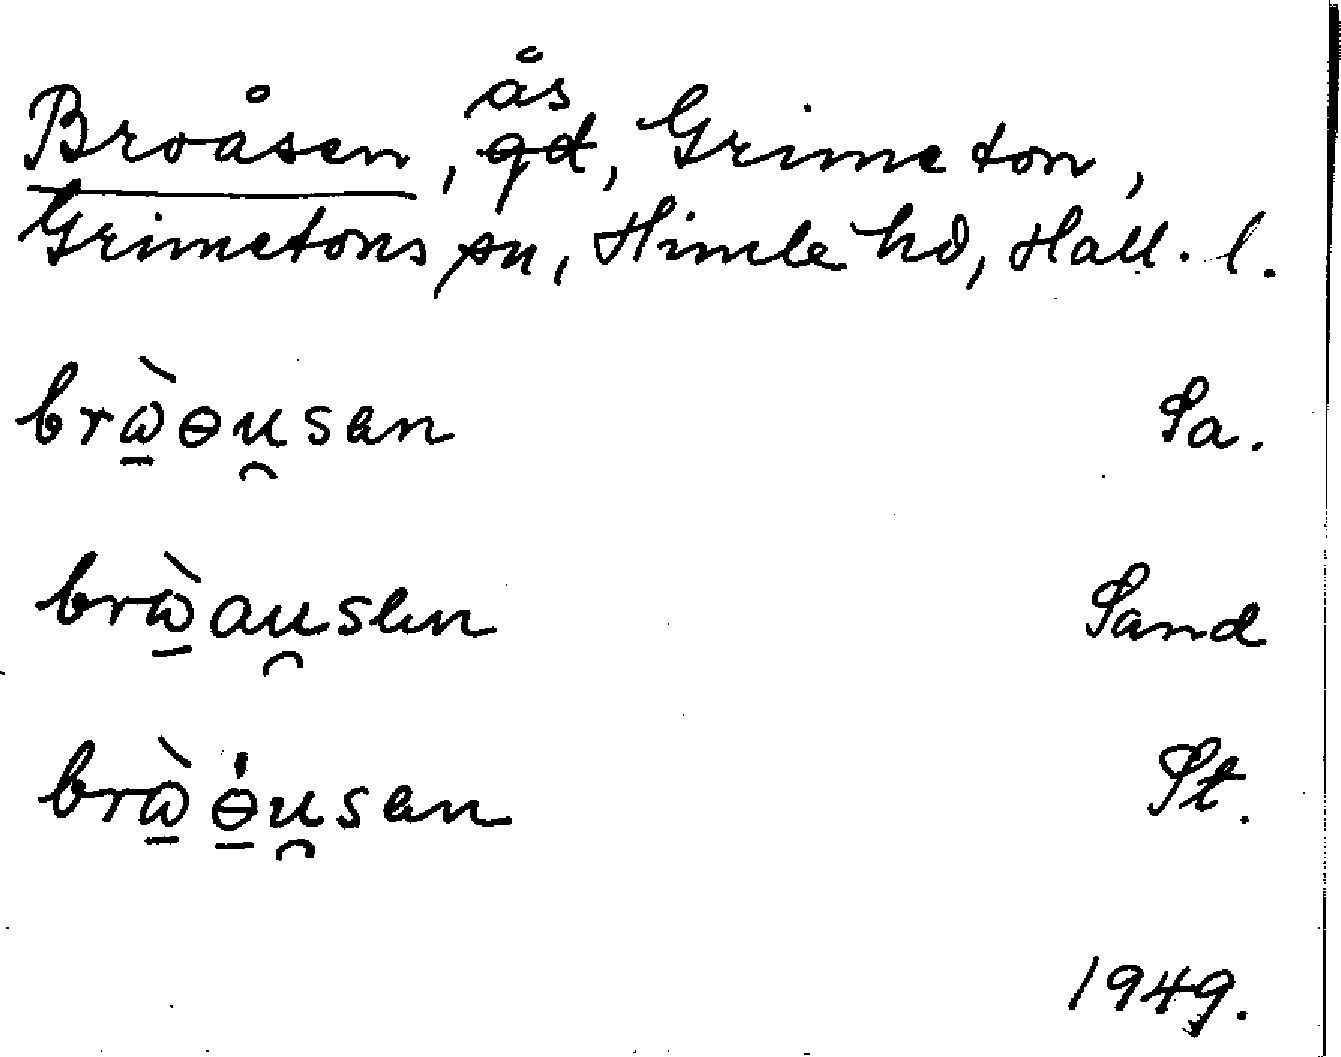 Broåsen, ås, Grimeton,
Grimetons sn, Himle hd, Hall. l.
brὼ̱ɵu̯sen Sa.
brὼ̱au̯sen Sand
brὼ̱ɵ̱̍u̯sen St.
1949.